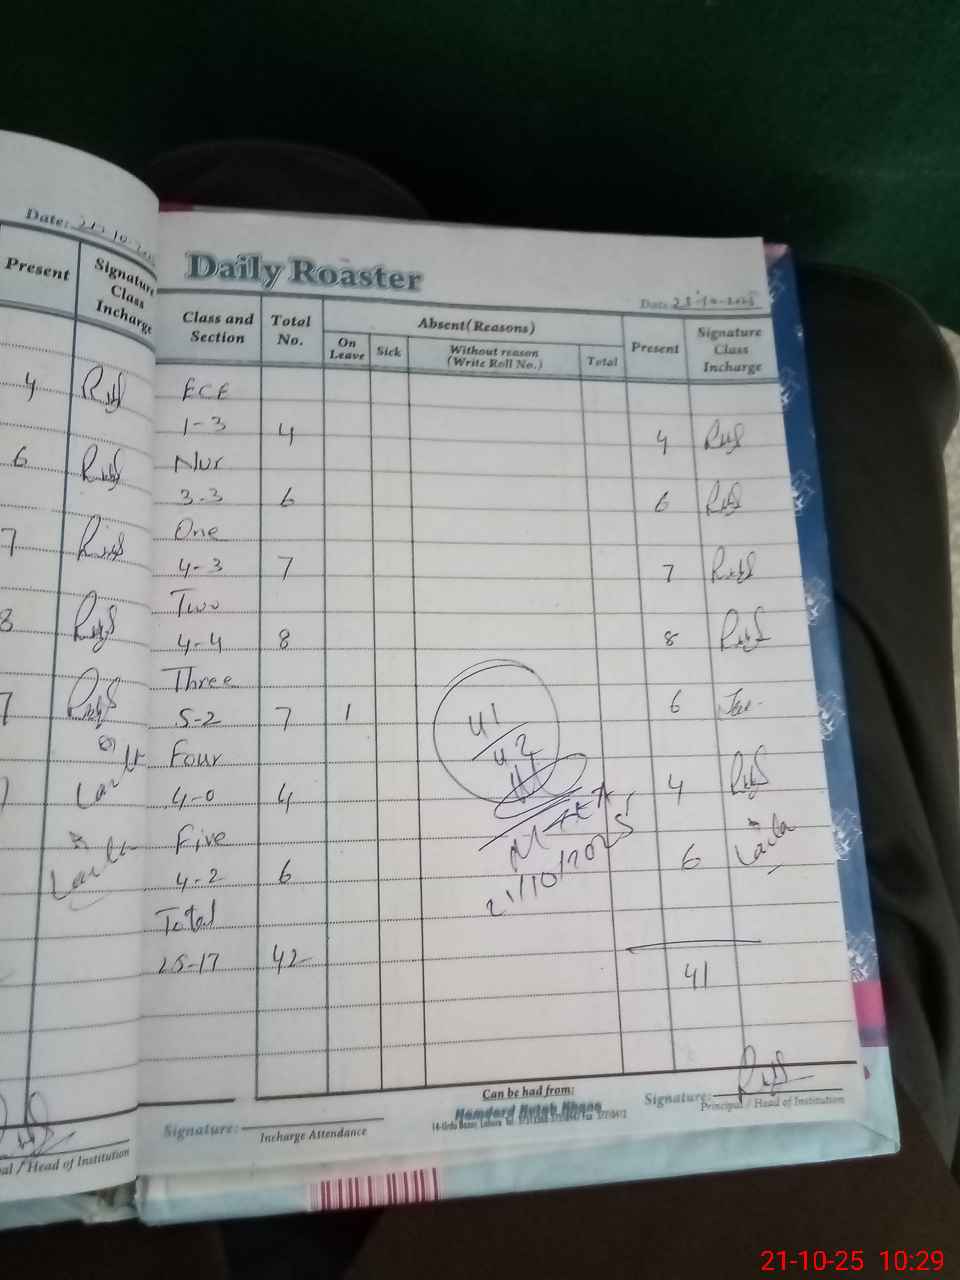 Date:
Present
Signature
Class
Incharge
4
6
7
8
7
Laila
Head of Institution
Daily Roaster
Class and
Section
Total
No.
Absent(Reasons)
On
Leave
Sick
Without reason
(Write Roll No.)
Total
Present
Signature
Class
Incharge
Date:
ECE
1-3 4 4
Nur
3-3 6 6
One
4-3 7 7
Two
4-4 8 8
Three
5-2 7 1 6
Four
4-0 4 4
Five
4-2 6 6 Laila
Total
25-17 42 41
41
42
21/10/2025
Can be had from:
Hamdard Kutab Khana
Signature:
Incharge Attendance
Signature:
Principal / Head of Institution
21-10-25 10:29